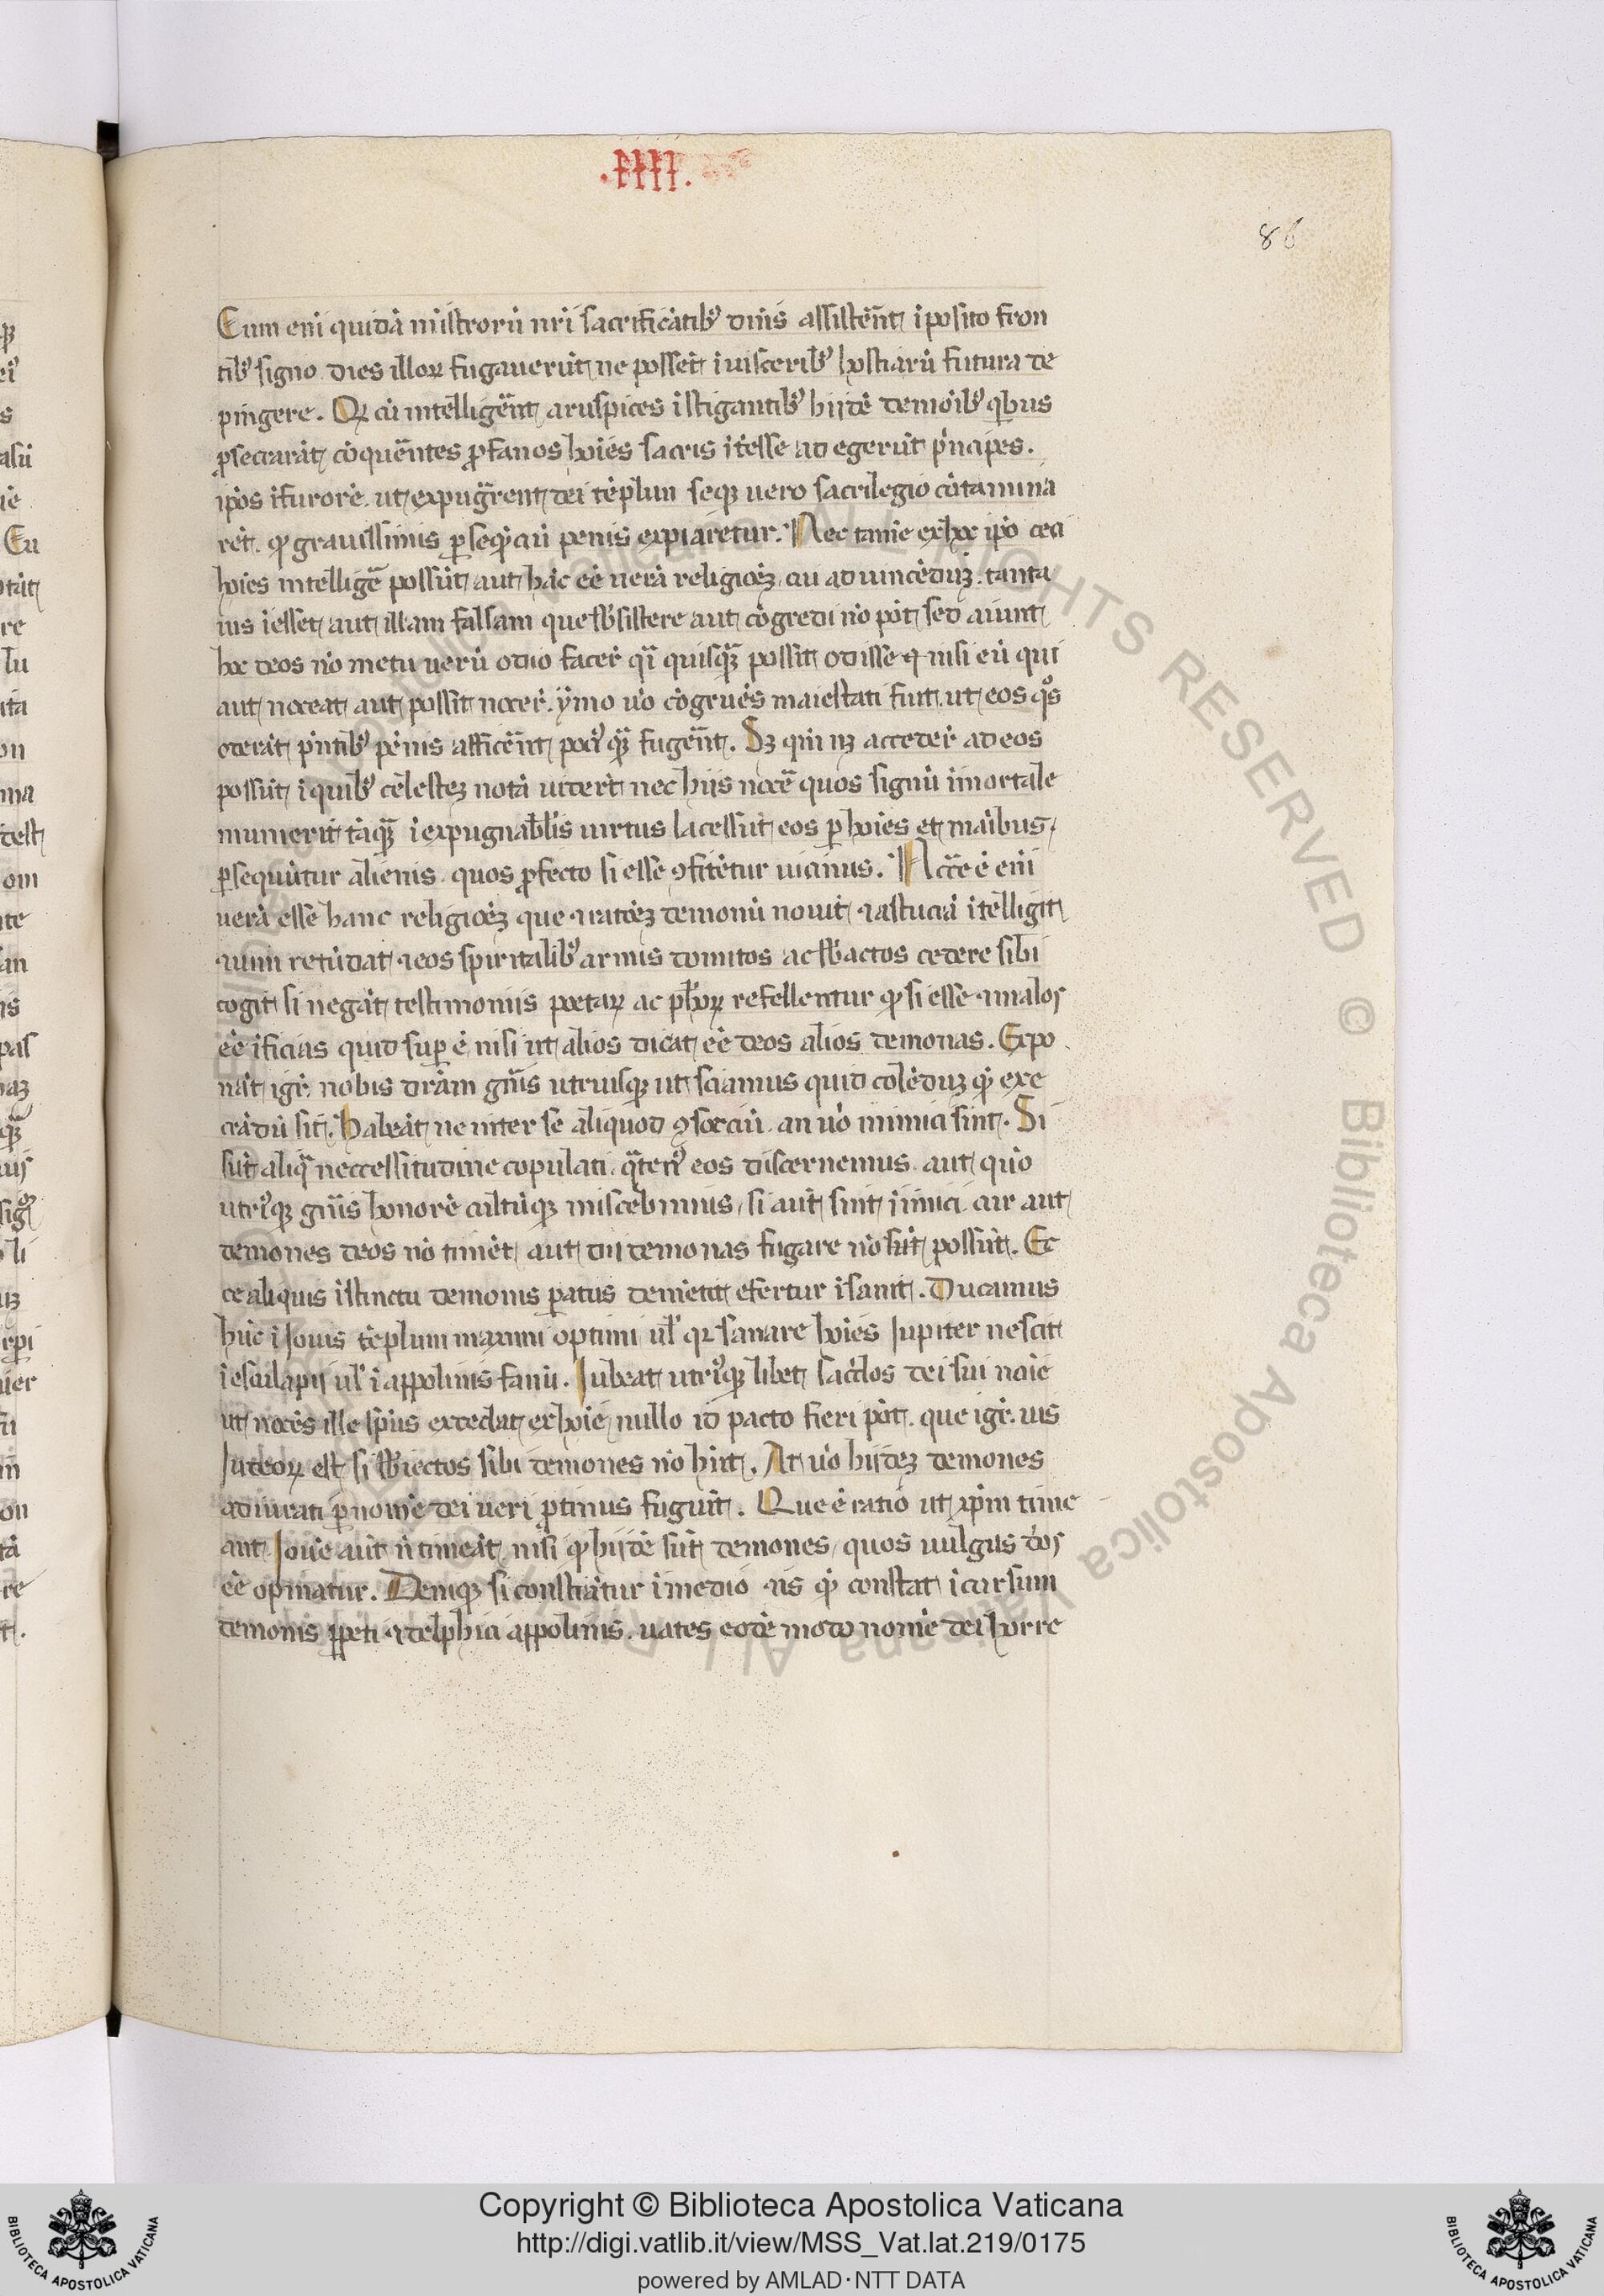 .IIII.
86
Cum eni quidã mistrorũ nri sacrificãtibꝰ dnis assistẽnt iposito fron
tibꝰ signo dies illoꝝ fugauerũt ne possẽt i uisceribꝰ hostiarũ futura de
pingere. Qꝫ cũ intelligẽnt aruspices istigantibꝰ hiidẽ demoibꝰ qbus
ꝓsecrarãt cõquẽntes ꝓfanos hoies sacris itesse ad egerũt pncipes.
ipos ifurorẽ ut expugrent dei tẽplun seqꝫ uero sacrilegio cõtamina
rẽt qͥ grauissimis ꝑsequciũ penis expiaretur. Nec tamẽ ex hoc ipo ceci
hoies intelligẽ possũt aut hãc eẽ uerã religiõeꝫ cui ad uincẽduꝫ tanta
uis iesset aut illam falsam que sbsistere aut cõgredi nõ põt sed aiunt
hoc deos nõ metu uerũ odio facer qi quisqꝫ possit odisse ꝙ nisi eũ qui
aut noceat aut possit nocer ymo uo cõgruẽs maiestati fuit ut eos qͦs
oderãt pntibꝰ penis afficẽnt pociꝰ qꝫ fugẽnt. Sꝫ qm nꝫ acceder ad eos
possũt i quibꝰ celesteꝫ notã uiderit nec hiis nocẽ quos signũ imortale
munierit tãqꝫ iexpugnablis uirtus lacessũt eos ꝑ hoies et maibus
ꝑsequũtur alienis quos ꝓfecto si esse ꝯfitẽtur uicimus. Nccẽ ẽ eni
uerã esse hanc religiõeꝫ que ⁊ ratoeꝫ demonũ nouit ⁊ astuciã itelligit
⁊ uim retũdat ⁊ eos spiritalibꝰ armis domitos ac sbactos cedere sibi
cogit si negãt testimoniis poetaꝝ ac phoꝝ refellentur qͥ si esse ⁊ malos
eẽ ificias quid suꝑ ẽ nisi ut alios dicãt eẽ deos alios demonas. Expo
nãt igr nobis dram gnis utriusqꝫ ut sciamus quid colẽduꝫ qͥ exe
crãdũ sit. Habeãt ne inter se aliquod ꝯsorciũ an uo inimici sint. Si
sũt aliqͣ neccessitudine copulati qͣtenꝰ eos discernemus aut quo
utriꝰqꝫ gnis honorẽ cultũqꝫ miscebimus, si aut sint iimici cur aut
demones deos nõ timẽt aut dii demonas fugare nõ sũt possũt. Ec
ce aliquis istinctu demonis ꝑatus demẽtit efertur isanit. Ducamus
hũc i Jouis tẽplum maximi optimi ul qꝛ sanare hoies Jupiter nescit
i esculapii ul i appolinis fanũ. Jubeat utriꝰqꝫ libet sacdos dei sui noie
ut nocẽs ille spus excedat ex hoie nullo id pacto fieri põt que igr uis
Judeoꝝ est si sbiectos sibi demones nõ hnt. At uo hiideꝫ demones
adiurati ꝑ nomẽ dei ueri ꝓtinus fugiũt. Que ẽ ratio ut xpm time
ant Jouẽ aut n timeãt nisi qͥ hiidẽ sũt demones, quos uulgus dos
eẽ opinatur. Deniqꝫ si constiatur imedio ⁊ is qͥ constat icursum
demonis ꝑpeti ⁊ delphici appolinis uates eodẽ modo nomẽ dei horre
Copyright © Biblioteca Apostolica Vaticana
http://digi.vatlib.it/view/MSS_Vat.lat.219/0175
powered by AMLAD·NTT DATA